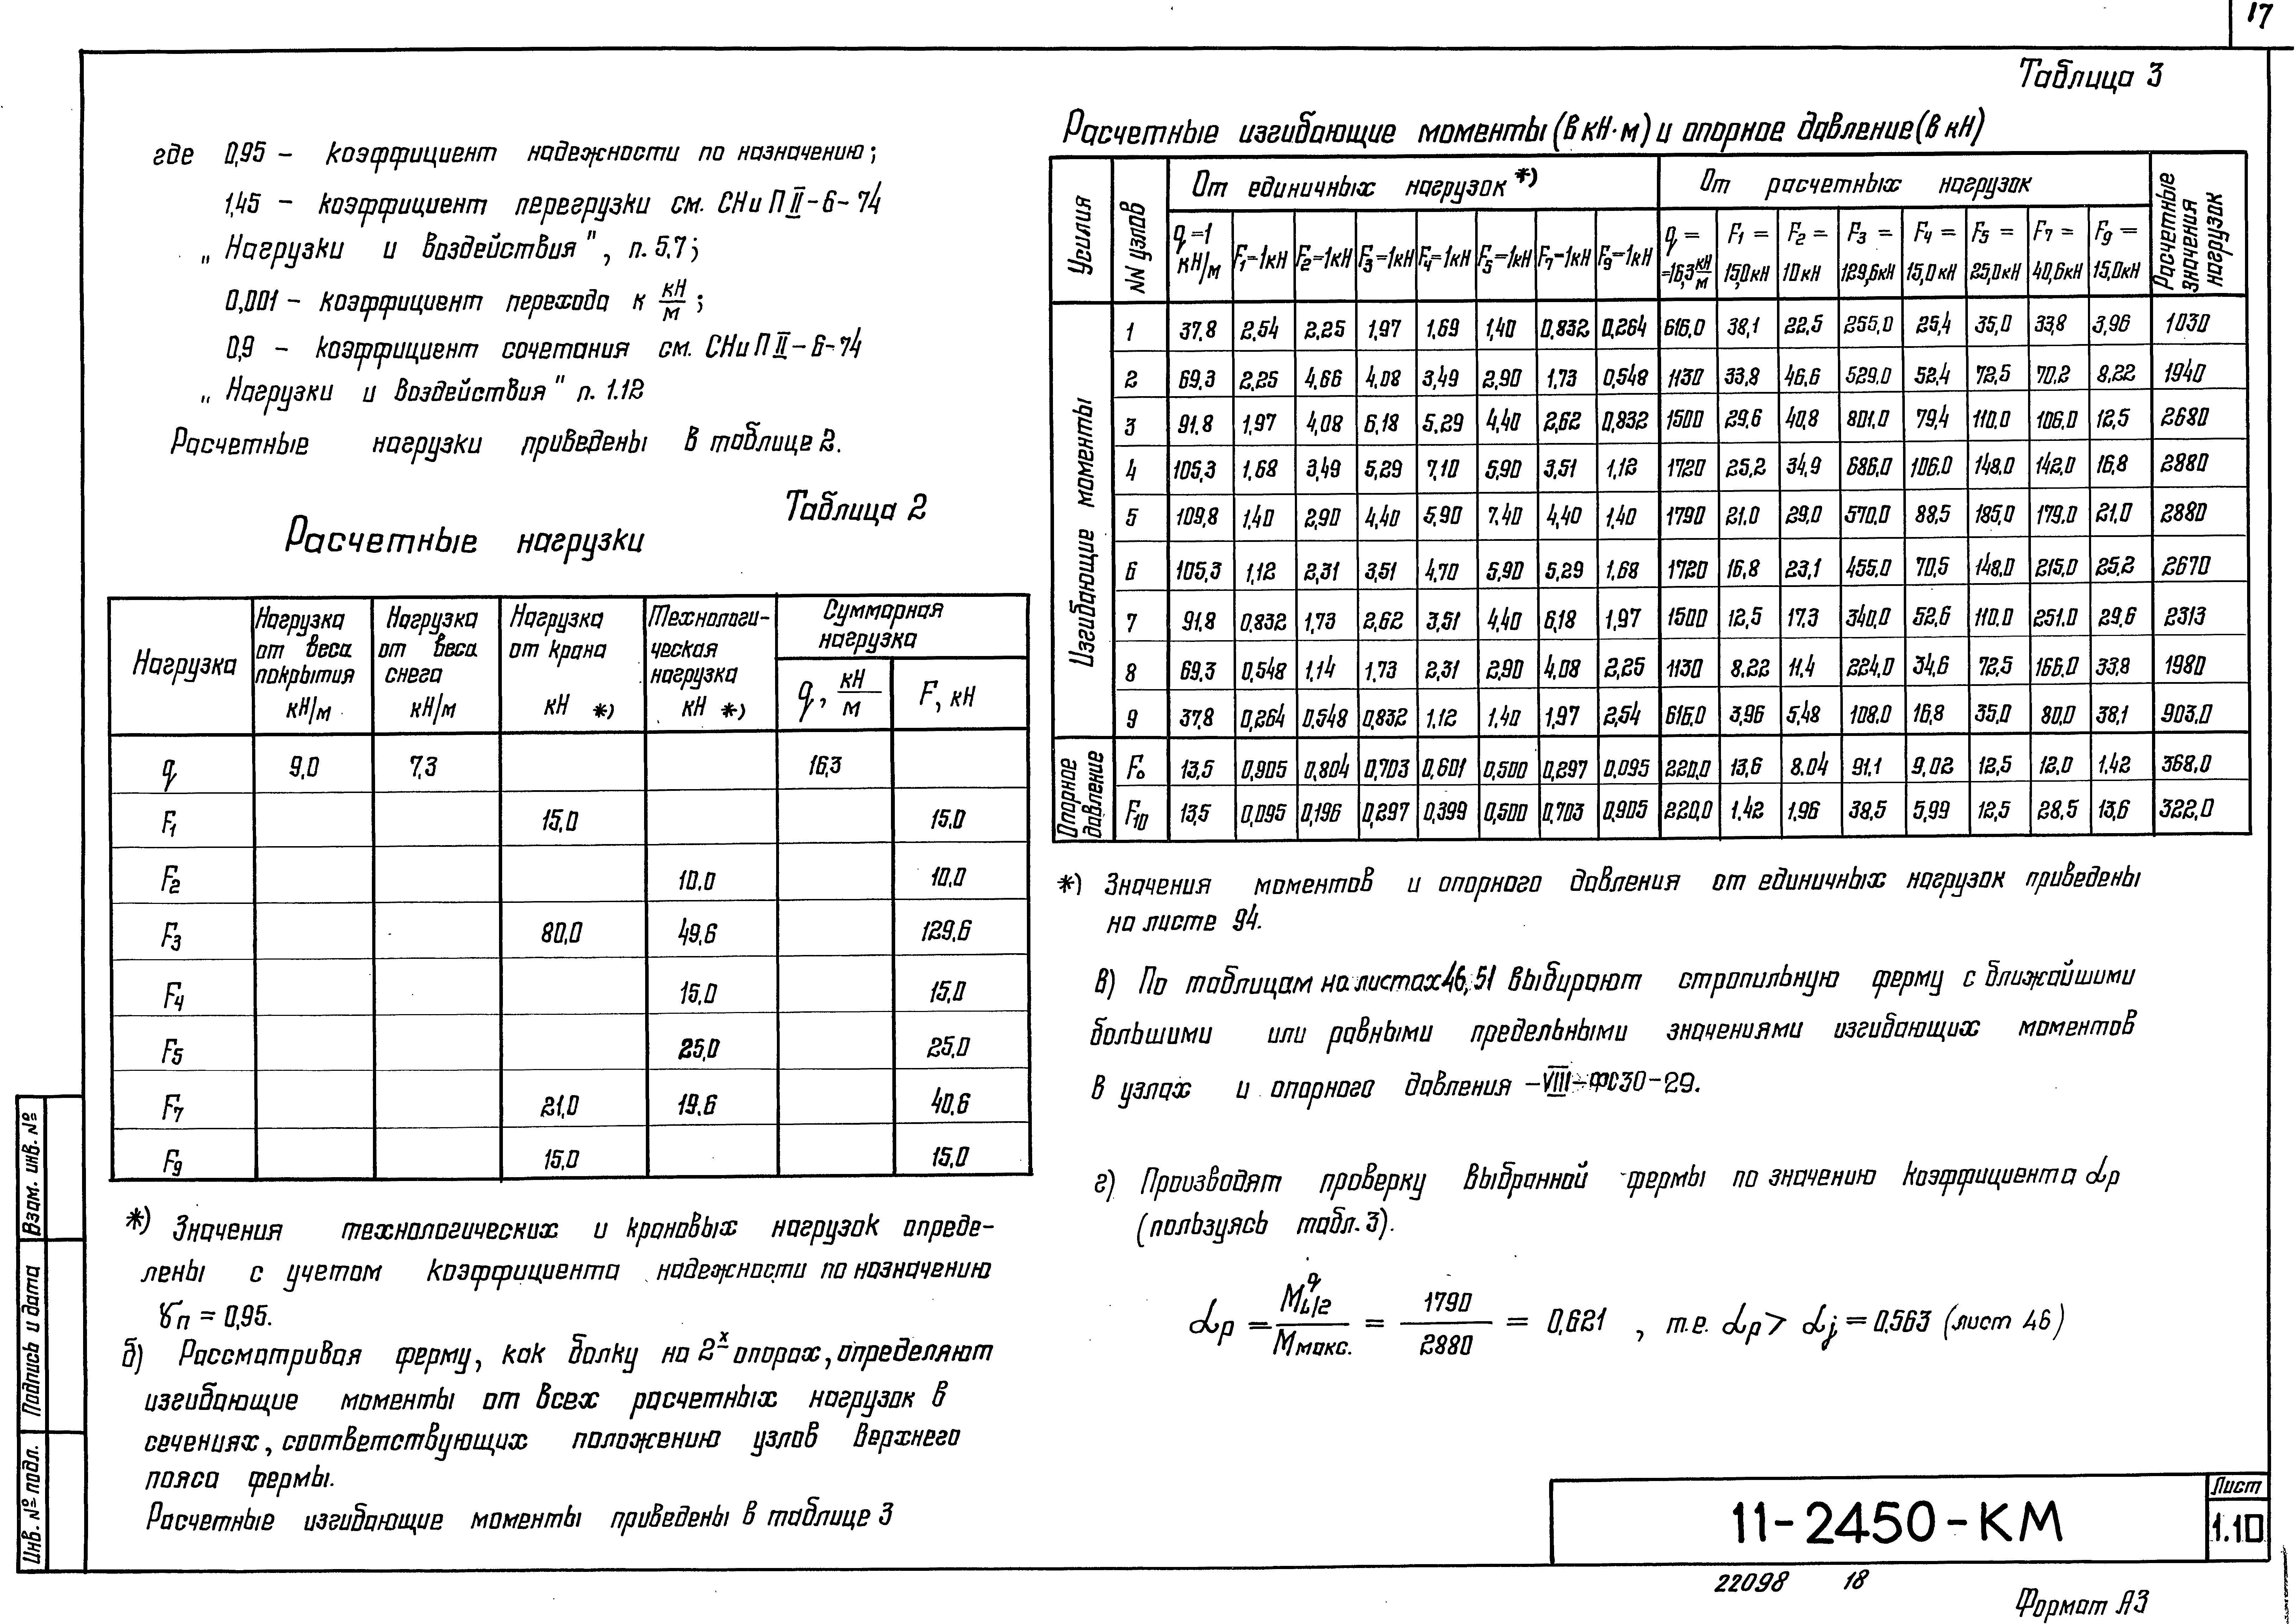 17
где 0,95 – коэффициент надежности по назначению;
1,45 – коэффициент перегрузки см. СНиП II-6-74
„Нагрузки и воздействия", п. 5.7;
0,001 – коэффициент перехода к кН/м;
0,9 – коэффициент сочетания см. СНиП II-6-74
„Нагрузки и воздействия" п. 1.12
Расчетные нагрузки приведены в таблице 2.
Таблица 2
Расчетные нагрузки
Нагрузка | Нагрузка от веса покрытия кН/м | Нагрузка от веса снега кН/м | Нагрузка от крана кН *) | Технологическая нагрузка кН *) | Суммарная нагрузка q, кН/м | F, кН
q 9,0 7,3 16,3
F1 15,0 15.0
F2 10.0 10.0
F3 80,0 49,6 129.6
F4 15,0 15,0
F5 25,0 25,0
F7 21,0 19.6 40,6
F9 15,0 15.0
*) Значения технологических и крановых нагрузок опреде-
лены с учетом коэффициента надежности по назначению
γп = 0,95.
б) Рассматривая ферму, как балку на 2х опорах, определяют
изгибающие моменты от всех расчетных нагрузок в
сечениях, соответствующих положению узлов верхнего
пояса фермы.
Расчетные изгибающие моменты приведены в таблице 3
Таблица 3
Расчетные изгибающие моменты (в кН·м) и опорное давление (в кН)
Усилия | NN узлов | От единичных нагрузок *) | От расчетных нагрузок | Расчетные значения нагрузок
q=1 кН/м F1=1кН F2=1кН F3=1кН F4=1кН F5=1кН F7=1кН F9=1кН q= =16,3 кН/м F1= 15,0кН F2= 10кН F3= 129,6кН F4= 15,0кН F5= 25,0кН F7= 40,6кН F9= 15,0кН
Изгибающие моменты
1 37.8 2,54 2,25 1,97 1,69 1,40 0,832 0,264 616,0 38,1 22,5 255,0 25,4 35,0 33,8 3,96 1030
2 69.3 2,25 4,66 4,08 3,49 2,90 1,73 0,548 1130 33,8 46,6 529.0 52,4 72,5 70,2 8,22 1940
3 91.8 1,97 4,08 6,18 5,29 4,40 2,62 0,832 1500 29,6 40,8 801,0 79,4 110,0 106,0 12,5 2680
4 105,3 1,68 3,49 5,29 7,10 5,90 3,51 1,12 1720 25,2 34,9 686,0 106,0 148,0 142,0 16,8 2880
5 109,8 1,40 2,90 4,40 5,90 7,40 4,40 1,40 1790 21,0 29,0 570,0 88,5 185,0 179,0 21,0 2880
6 105,3 1,12 2,31 3,51 4,70 5,90 5,29 1,68 1720 16,8 23,1 455,0 70,5 148,0 215,0 25,2 2670
7 91.8 0,832 1,73 2,62 3,51 4,40 6,18 1,97 1500 12,5 17,3 340,0 52,6 110,0 251,0 29,6 2313
8 69.3 0,548 1,14 1,73 2,31 2,90 4,08 2,25 1130 8,22 11.4 224,0 34,6 72,5 166,0 33,8 1980
9 37,8 0,264 0,548 0,832 1,12 1,40 1,97 2,54 616,0 3,96 5,48 108,0 16,8 35,0 80,0 38,1 903,0
Опорное давление
F0 13,5 0,905 0,804 0,703 0,601 0,500 0,297 0,095 220,0 13,6 8.04 91,1 9,02 12,5 12,0 1,42 368,0
F10 13,5 0,095 0,196 0,297 0,399 0,500 0,703 0,905 220,0 1,42 1,96 38,5 5,99 12,5 28,5 13,6 322,0
*) Значения моментов и опорного давления от единичных нагрузок приведены
на листе 94.
в) По таблицам на листах 46, 51 выбирают стропильную ферму с ближайшими
большими или равными предельными значениями изгибающих моментов
в узлах и опорного давления – VIII-ФС30-29.
г) Производят проверку выбранной фермы по значению коэффициента αр
(пользуясь табл. 3).
αр = M q L/2 / Mмакс. = 1790 / 2880 = 0,621 , т.е. αр > αj = 0,563 (лист 46)
Взам. инв. №
Подпись и дата
Инв. № подл.
11-2450-КМ
Лист
1.10
22098 18
Формат А3